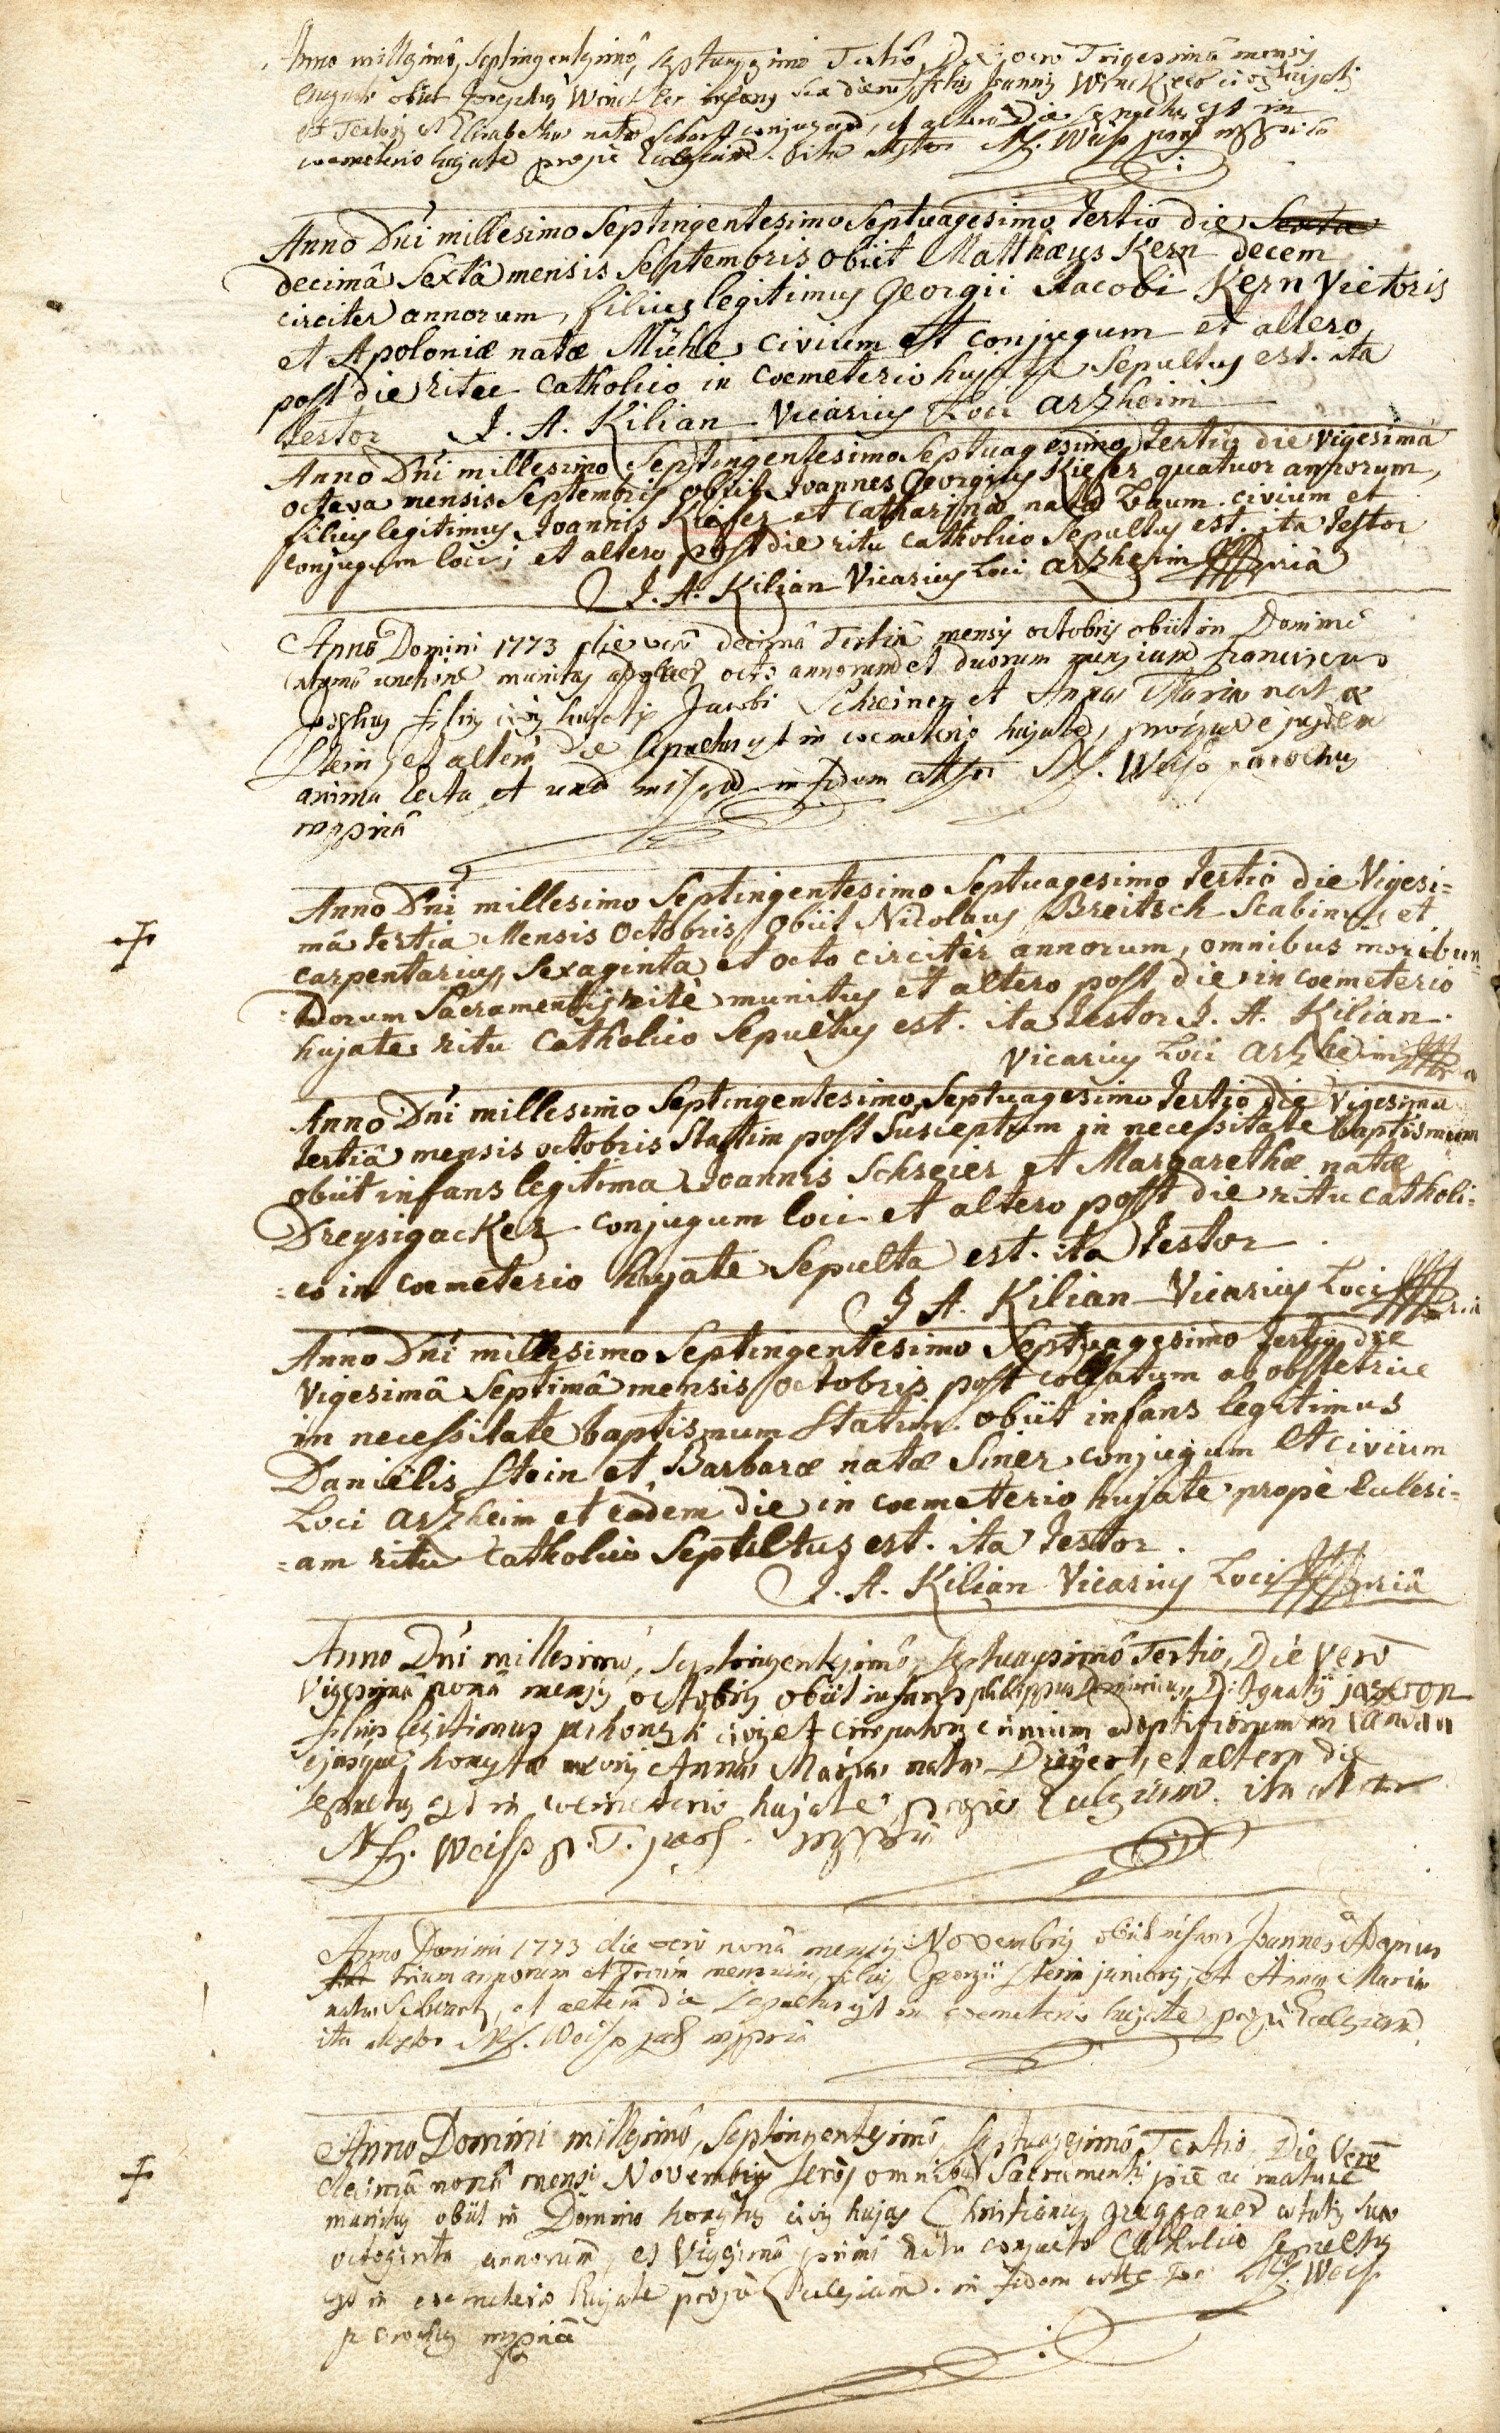 Anno millesimô, septingentesimô, septuagesimô Tertiô, Die vero Trigesimâ mensis
Augusti obiit Josephus Winckler infans sex dierum, filius Joannis Winckler civis hujatis
et Textoris et Elisabethæ natæ conjugum, et alterâ Die sepultus est in
coemeterio hujate propè Ecclesiam. ita attestor M. Weiss par: mppriâ
Anno Dni millesimo Septingentesimo Septuagesimo tertio die
decimâ Sextâ mensis Septembris obiit Matthæus Kern decem
circiter annorum, filius legitimus Georgii Jacobi Kern Victoris
et Apoloniæ natæ Mühle civium et conjugum et altero
post die ritu catholico in coemeterio hujate Sepultus est. ita
testor J. A. Kilian Vicarius Loci arzheim
Anno Dni millesimo Septingentesimo Septuagesimo tertio die vigesima
octava mensis Septembris obiit Joannes Georgius Kiefer quatuor annorum,
filius legitimus Joannis Kiefer et Catharinæ natæ Baum civium et
conjugum loci; et altero post die ritu catholico Sepultus est. ita testor
J. A. Kilian Vicarius Loci arzheim mppriâ
Anno Domini 1773 die verò decimâ Tertiâ mensis octobris obiit in Domino
unctione munitus octo annorum et duorum mensium franciscus
Josephus filius civis hujatis Jacobi Schreiner et Annæ Mariæ natæ
Stein, et alterâ die sepultus est in coemeterio hujate, proque ejusdem
anima lecta et una missa in fidem attestor M. Weiss parochus
mppriâ
Anno Dni millesimo Septingentesimo Septuagesimo tertio die Vigesi=
mâ tertia Mensis Octobris obiit Nicolaus Breitsch Scabinus et
carpentarius, Sexaginta et octo circiter annorum, omnibus moribun=
dorum Sacramentis ritè munitus et altero post die in coemeterio
hujate ritu Catholico Sepultus est. ita testor J. A. Kilian.
Vicarius Loci arzheim
Anno Dni millesimo Septingentesimo Septuagesimo tertio die Vigesima
tertiâ mensis octobris Statim post Susceptum in necessitate baptismum
obiit infans legitima Joannis Schreier et Margarethæ natæ
Dreysigacker conjugum loci et altero post die ritu catholi=
=co in coemeterio hujate Sepulta est. ita testor
J. A. Kilian Vicarius Loci mppria
Anno Dni millesimo Septingentesimo Septuagesimo tertio die
Vigesimâ Septimâ mensis octobris post collatum ab obstetrice
in necessitate baptismum Statim obiit infans legitimus
Danielis Stein et Barbaræ natæ Siner conjugum et civium
Loci arzheim et eâdem die in coemetterio hujate propè Ecclesi=
=am ritu catholico Sepultus est. ita testor.
J. A. Kilian Vicarius Loci mppriâ
Anno Dni millesimô, septingentesimô, septuagesimô Tertio, Die Verò
Vigesimâ nonâ mensis octobris obiit infans philippus Dominicus D: Ignatij
filius legitimus civis et
ejusque honestæ uxoris Annæ Mariæ natæ Dreyert, et alterâ die
sepultus est in coemeterio hujate, propè Ecclesiam. ita attestor
M. Weiss p. T. par. mppriâ
Anno Domini 1773 die verò nonâ mensis Novembris obiit infans Joannes Adamus
trium annorum et Trium mensium, filius Georgii Stein junioris, et Annæ Mariæ
natæ Schwartz, et alterâ die sepultus est in coemeterio hujate propè Ecclesiam
ita attestor M. Weiss par mppriâ
Anno Domini millesimô, septingentesimô, septuagesimô Tertio, Die Verò
decimâ nonâ mensis Novembris serò, omnibus Sacramentis piè ac maturè
munitus obiit in Domino honestus civis hujas Christianus ætatis suæ
octoginta annorum, et Vigesimâ primâ ritu consueto Catholico sepultus
est in coemeterio hujate propè Ecclesiam. in fidem attestor M. Weiss
parochus mppriâ